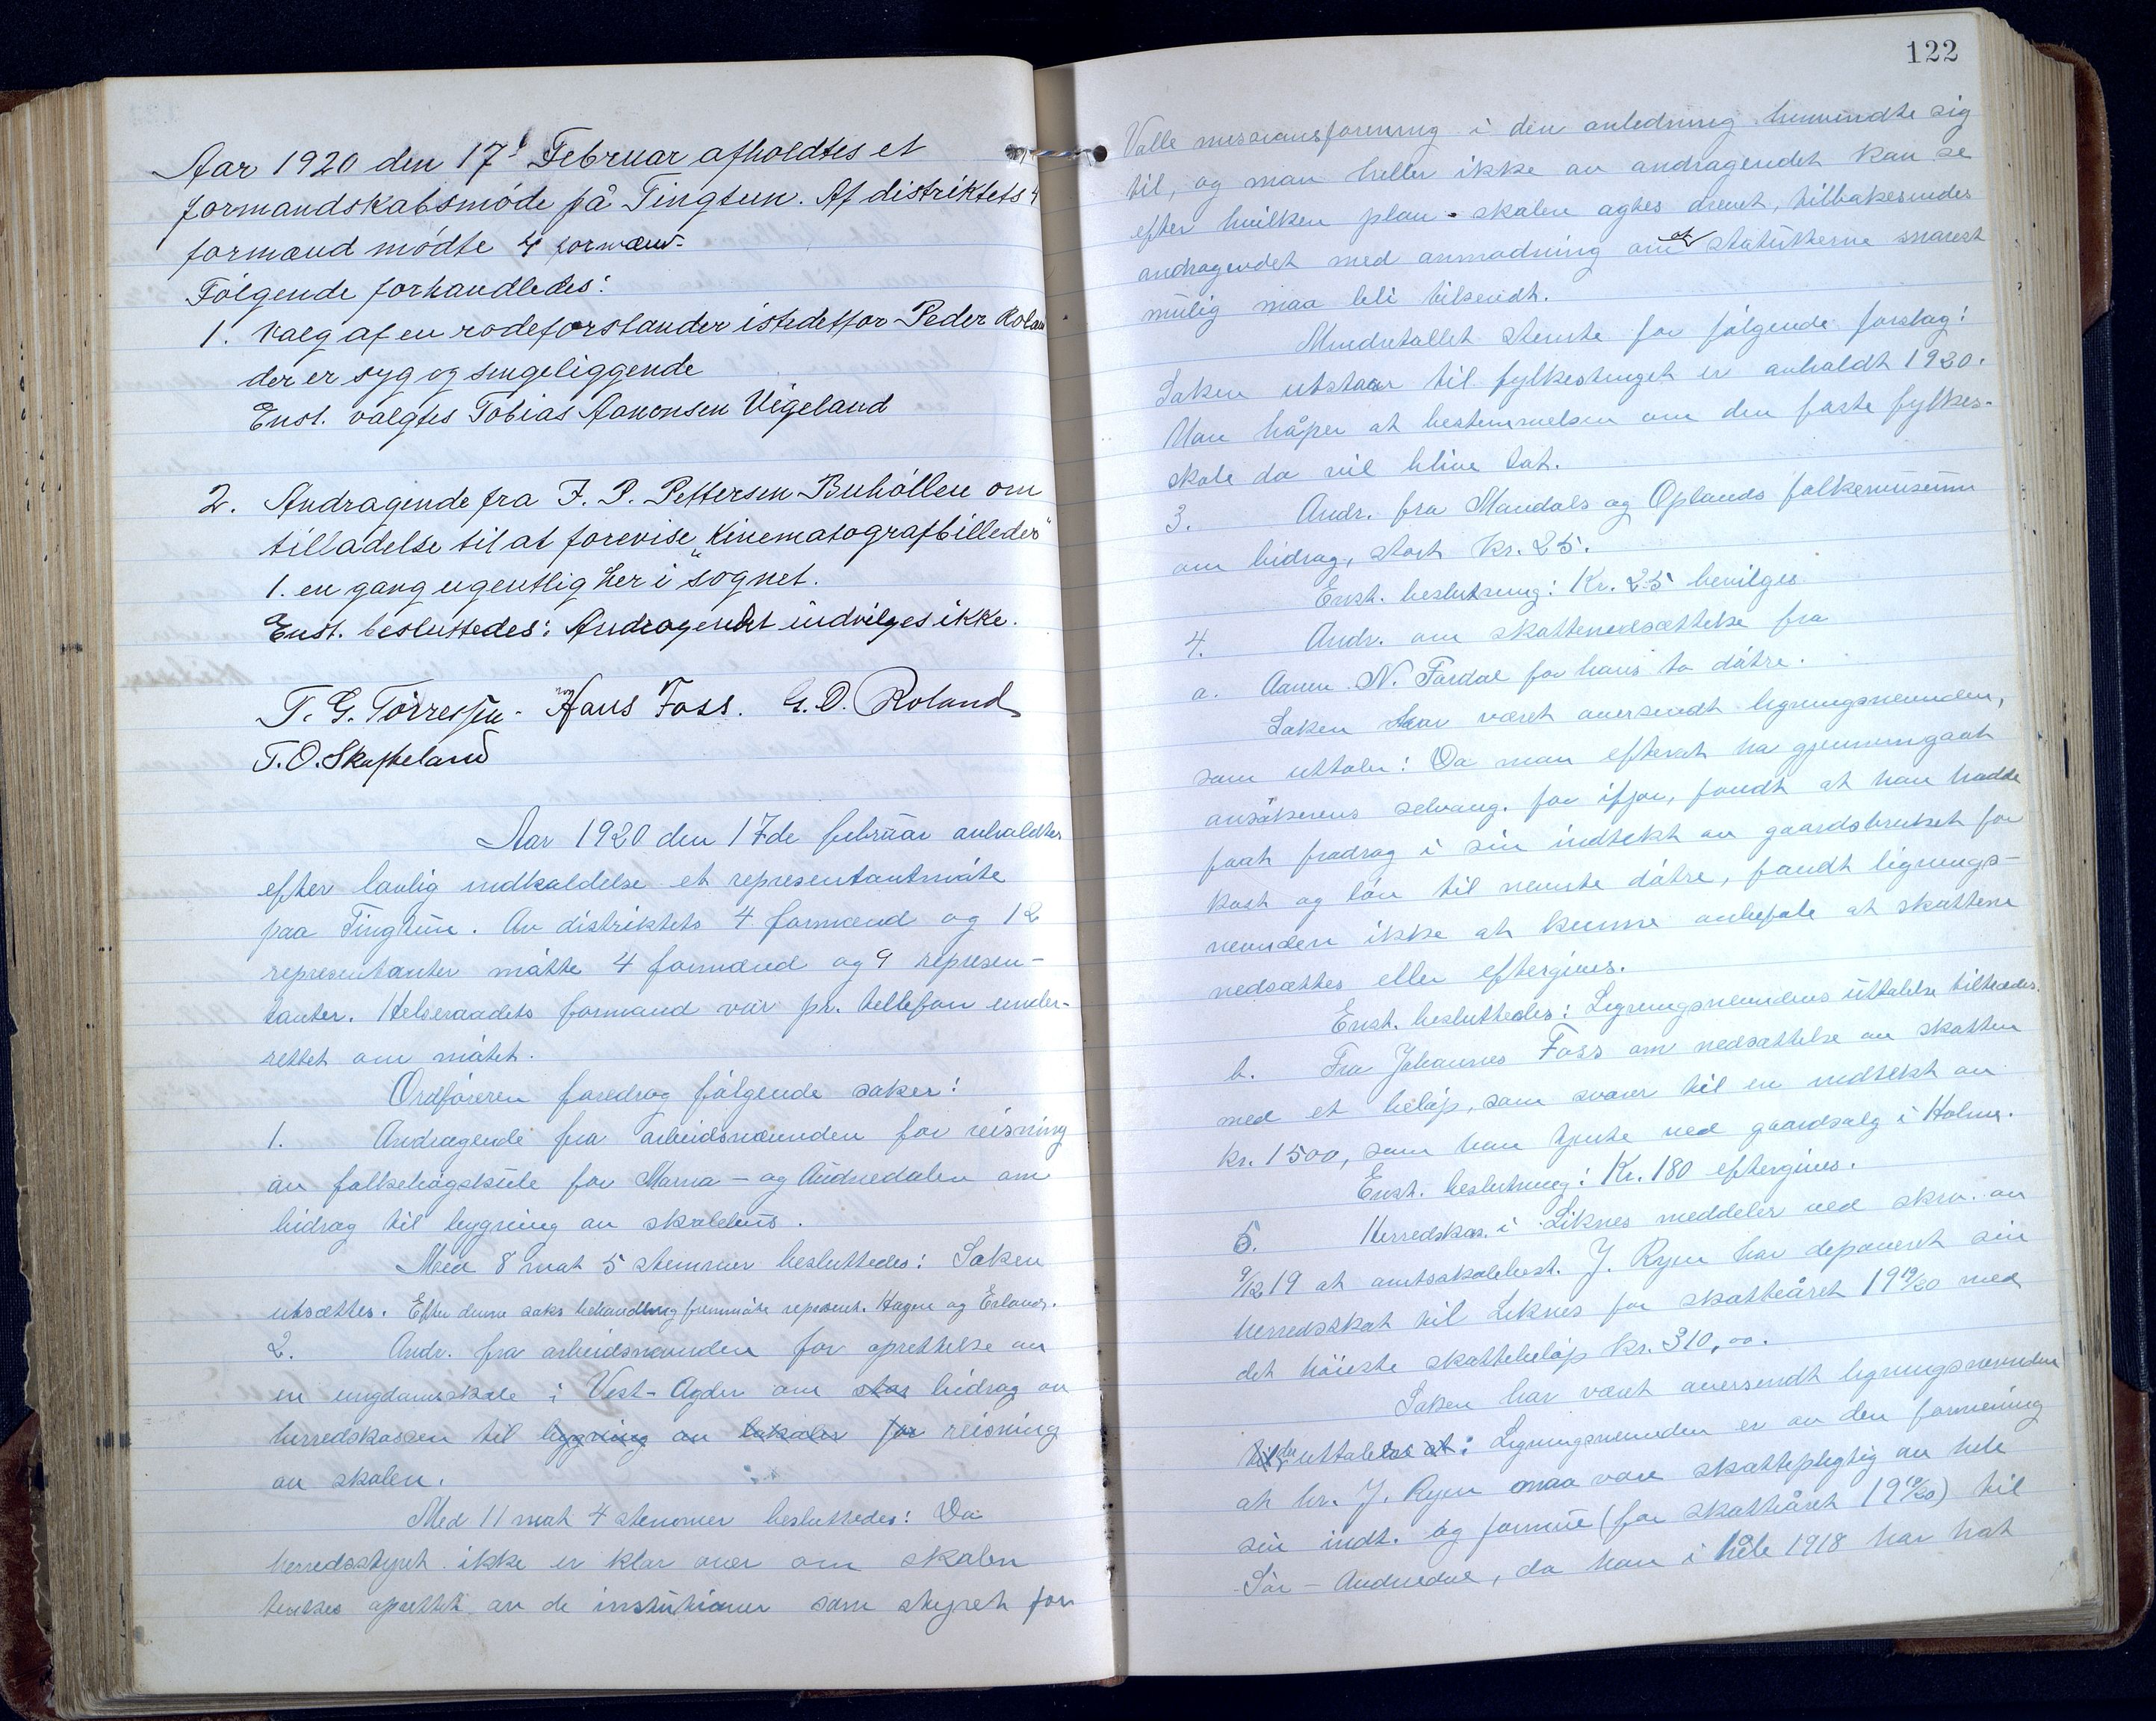 Aar 1920 den 17d Februar afholdtes et
formandskabsmöde på Tingtun. Af distriktets 4
formænd mödte 4 formænd.
Fölgende forhandledes:
1. Valg af en rodeforstander istedetfor Peder Roland
der er syg og sengeliggende
Enst. valgtes Tobias Aanonsen Vigeland
2. Andragende fra J. P. Pettersen Buhöllen om
tilladelse til at forevise „Kinematografbilleder"
1. en gang ugentlig her i sognet.
Enst. besluttedes: Andragendet indvilges ikke.
T. G. Törressen. Hans Foss. G. O. Roland
T. O. Skofteland
Aar 1920 den 17de februar avholdtes
efter lovlig indkaldelse et representantmøte
paa Tingtun. Av distriktets 4 formænd og 12
representanter møtte 4 formænd og 9 represen-
tanter. Helseraadets formand var pr. tellefon under-
rettet om møtet.
Ordføreren foredrog følgende saker:
1. Andragende fra arbeidsnævnden for reisning
av folkehøgskule for Marna- og Audnedalen om
bidrag til bygning av skolehus.
Med 8 mot 5 stemmer besluttedes: Saken
utsættes. Efter denne saks behandling fremmøtte represent. Hagen og Erlands.
2. Andr. fra arbeidsnævnden for oprettelse av
en ungdomsskole i Vest-Agder om stor bidrag av
herredskassen til bygning av lokaler for reisning
av skolen.
Med 11 mot 4 stemmer besluttedes: Da
herredsstyret ikke er klar over om skolen
tænkes oprettet av de institutioner som styret for
122
Valle missionsforening i den anledning henvendte sig
til, og man heller ikke av andragendet kan se
efter hvilken plan skolen agtes drevet, tilbakesendes
andragendet med anmodning om at statutterne snarest
mulig maa bli tilsendt.
Mindretallet stemte for følgende forslag:
Saken utstaar til fylkestinget er avholdt 1920.
Man håper at bestemmelsen om den faste fylkes-
skole da vil blive tat.
3. Andr. fra Mandals og Oplands folkemuseum
om bidrag, stort kr. 25.
Enst. beslutning: Kr. 25 bevilges.
4. Andr. om skattenedsættelse fra
a. Aanen N. Fardal for hans to døtre.
Saken har været oversendt ligningsnevnden,
som uttaler: Da man efterat ha gjennemgaat
ansøkerens selvang. for ifjor, fandt at han hadde
faat fradrag i sin indtekt av gaardsbruket for
kost og løn til nevnte døtre, fandt lignings-
nevnden ikke at kunne anbefale at skattene
nedsættes eller eftergives.
Enst. besluttedes: Ligningsnevndens uttalelse tiltrædes.
b. Fra Johannes Foss om nedsættelse av skatten
med et beløp, som svarer til en indtekt av
kr. 1500, som han tjente ved gaardsalg i Holme.
Enst. beslutning: Kr. 180 eftergives.
5. Herredskas. i Liknes meddeler ved skriv. av
9/12 19 at amtsskolebest. J. Ryen har deponeret sin
herredsskat til Liknes for skatteåret 1919/20 med
det høieste skattebeløp kr. 310,00.
Saken har været oversendt ligningsnevnden
der uttaler: Ligningsnevnden er av den formening
at hr. J. Ryen maa være skattepligtig av hele
sin indt. og formue (for skatteåret 1919/20) til
Sør-Audnedal, da han i hele 1918 har hat